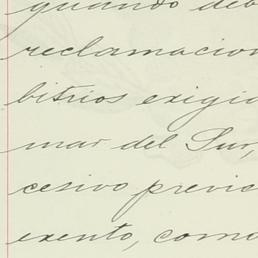 quando deb
reclamacion
bitrios exigid
mar del Sur,
cesivo previo
exento, como